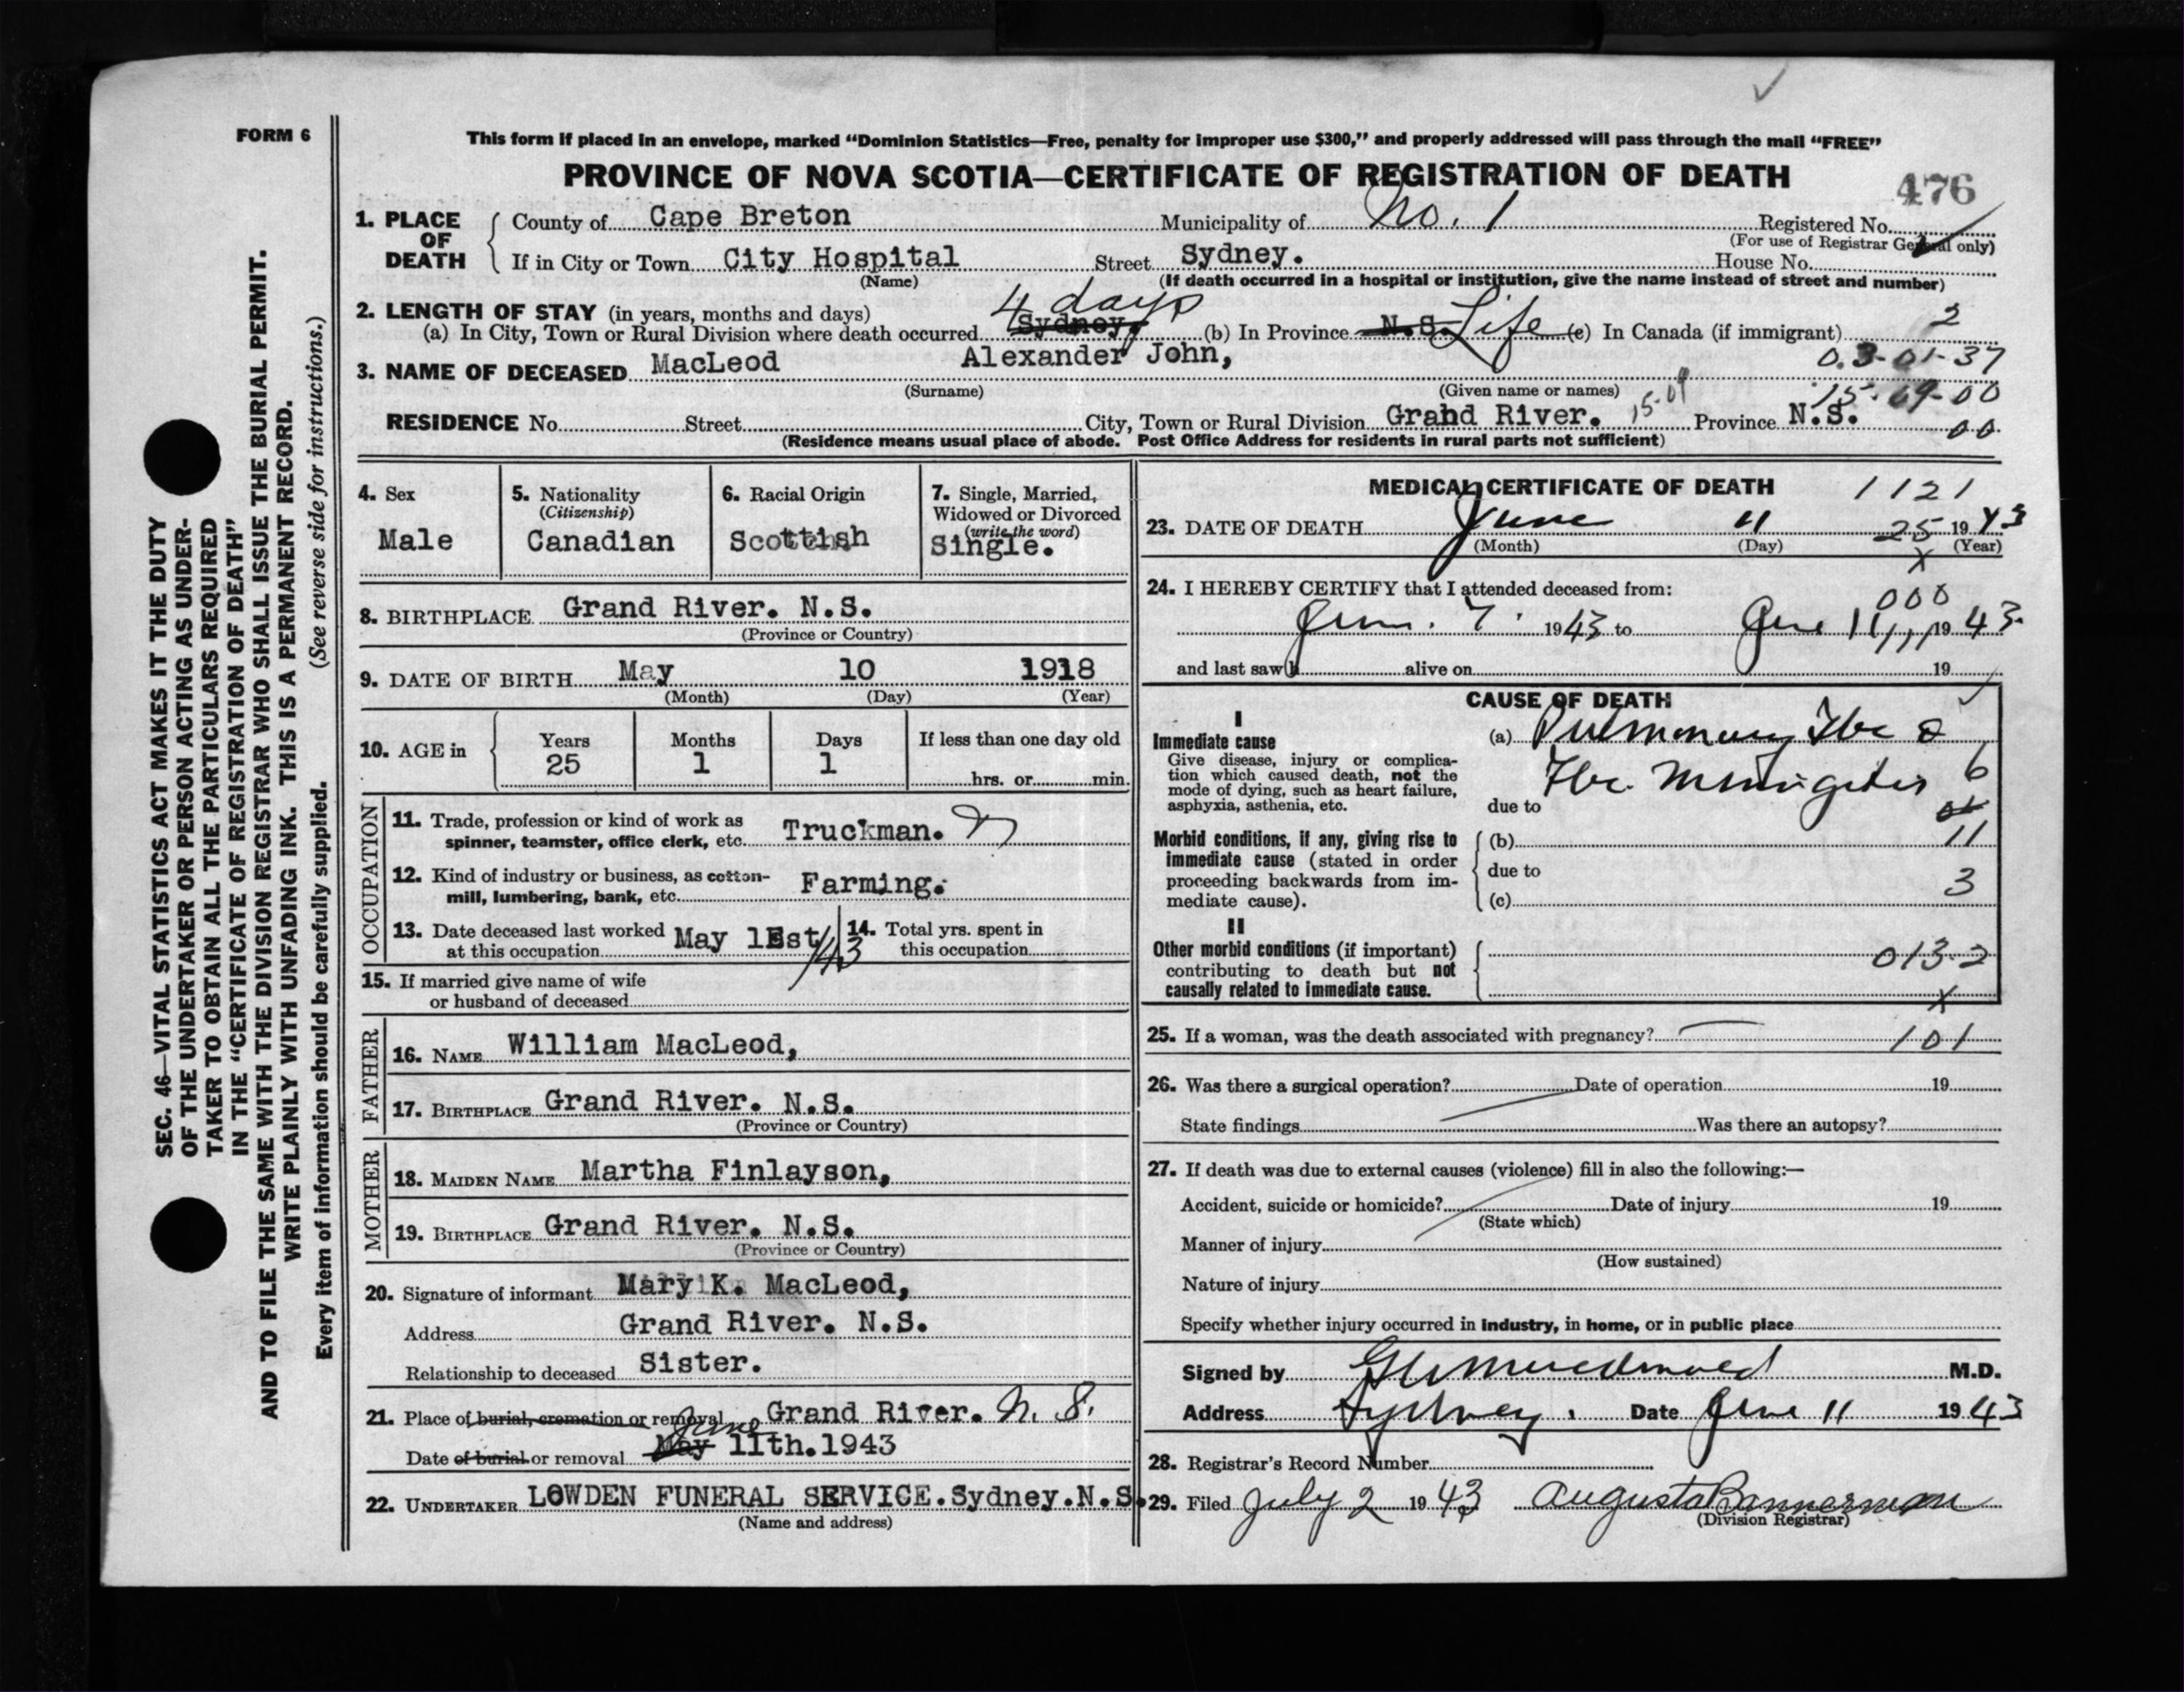 FORM 6
This form if placed in an envelope, marked “Dominion Statistics—Free, penalty for improper use $300,” and properly addressed will pass through the mail “FREE”
PROVINCE OF NOVA SCOTIA—CERTIFICATE OF REGISTRATION OF DEATH
476
1. PLACE OF DEATH
County of Cape Breton Municipality of No. 1 Registered No.
(For use of Registrar General only)
If in City or Town City Hospital Street Sydney. House No.
(Name) (If death occurred in a hospital or institution, give the name instead of street and number)
2. LENGTH OF STAY (in years, months and days) 4 days
(a) In City, Town or Rural Division where death occurred Sydney. (b) In Province N.S. Life (c) In Canada (if immigrant) 2
3. NAME OF DECEASED MacLeod Alexander John, 0.3-01-37
(Surname) (Given name or names) 15-09 15-69-00
RESIDENCE No. Street City, Town or Rural Division Grand River. Province N.S. 00
(Residence means usual place of abode. Post Office Address for residents in rural parts not sufficient)
4. Sex
Male
5. Nationality
(Citizenship)
Canadian
6. Racial Origin
Scottish
7. Single, Married,
Widowed or Divorced
(write the word)
Single.
8. BIRTHPLACE Grand River. N.S.
(Province or Country)
9. DATE OF BIRTH May 10 1918
(Month) (Day) (Year)
10. AGE in
Years Months Days If less than one day old
25 1 1 hrs. or min.
OCCUPATION
11. Trade, profession or kind of work as
spinner, teamster, office clerk, etc. Truckman.
12. Kind of industry or business, as cotton-
mill, lumbering, bank, etc. Farming.
13. Date deceased last worked
at this occupation May 1st /43
14. Total yrs. spent in
this occupation
15. If married give name of wife
or husband of deceased
FATHER
16. NAME William MacLeod,
17. BIRTHPLACE Grand River. N.S.
(Province or Country)
MOTHER
18. MAIDEN NAME Martha Finlayson,
19. BIRTHPLACE Grand River. N.S.
(Province or Country)
20. Signature of informant Mary K. MacLeod,
Address Grand River. N.S.
Relationship to deceased Sister.
21. Place of burial, cremation or removal Grand River. N.S.
Date of burial or removal May June 11th.1943
22. UNDERTAKER LOWDEN FUNERAL SERVICE.Sydney.N.S.
(Name and address)
MEDICAL CERTIFICATE OF DEATH 1121
23. DATE OF DEATH June 11 25 1943
(Month) (Day) (Year)
X
24. I HEREBY CERTIFY that I attended deceased from:
000
June. 7. 1943 to June 11, 1943.
and last saw h alive on 19
CAUSE OF DEATH
I
Immediate cause
Give disease, injury or complica-
tion which caused death, not the
mode of dying, such as heart failure,
asphyxia, asthenia, etc.
(a) Pulmonary Tbc &
Tbc. Meningitis 6
due to
Morbid conditions, if any, giving rise to
immediate cause (stated in order
proceeding backwards from im-
mediate cause).
(b) 11
due to
(c) 3
II
Other morbid conditions (if important)
contributing to death but not
causally related to immediate cause.
013-2
X
25. If a woman, was the death associated with pregnancy? 101
26. Was there a surgical operation? Date of operation 19
State findings Was there an autopsy?
27. If death was due to external causes (violence) fill in also the following:—
Accident, suicide or homicide? Date of injury 19
(State which)
Manner of injury
(How sustained)
Nature of injury
Specify whether injury occurred in industry, in home, or in public place
Signed by M.D.
Address Sydney. Date June 11 1943
28. Registrar's Record Number
29. Filed July 2 1943 Augusta Bannerman
(Division Registrar)
SEC. 46—VITAL STATISTICS ACT MAKES IT THE DUTY
OF THE UNDERTAKER OR PERSON ACTING AS UNDER-
TAKER TO OBTAIN ALL THE PARTICULARS REQUIRED
IN THE “CERTIFICATE OF REGISTRATION OF DEATH”
AND TO FILE THE SAME WITH THE DIVISION REGISTRAR WHO SHALL ISSUE THE BURIAL PERMIT.
WRITE PLAINLY WITH UNFADING INK. THIS IS A PERMANENT RECORD.
Every item of information should be carefully supplied. (See reverse side for instructions.)